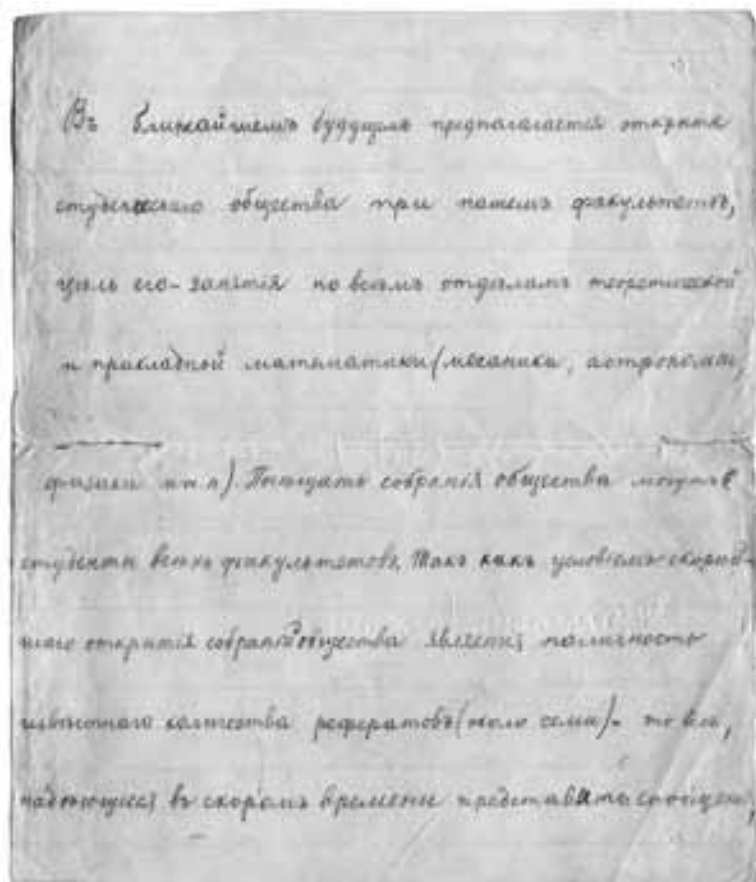 Въ ближайшемъ будущемъ предполагается открытіе
студенческаго общества при нашемъ факультетѣ,
цѣль его - занятія по всѣмъ отдѣламъ теоретической
и прикладной математики (механики, астрономіи,
физики и т п). Посѣщать собранія общества могутъ
студенты всѣхъ факультетовъ. Такъ какъ условіемъ скорѣй-
шаго открытія собраній общества является наличность
извѣстнаго количества рефератовъ (около семи) - то всѣ,
надѣющіеся въ скоромъ времени представить сообщенія,